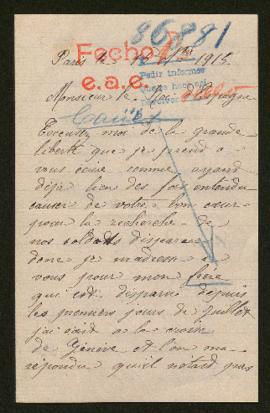 86881
Fecho
e.a.e.
Paris le 1915
Pedir informes
Monsieur le Roi d'Espagne
Caïnes
Excusez moi de la grande
liberté que je prend a
vous écrire comme ayand
déja bien des fois entendu
causer de votre bon cœur
pour la recherche de
nos soldats disparu
donc je m'adresse a
vous pour mon frère
qui est disparu depuis
les premiers jours de Juillet
j'ai écrit a la croix
de Genève et l'on ma
répondu qu'il n'otard pas